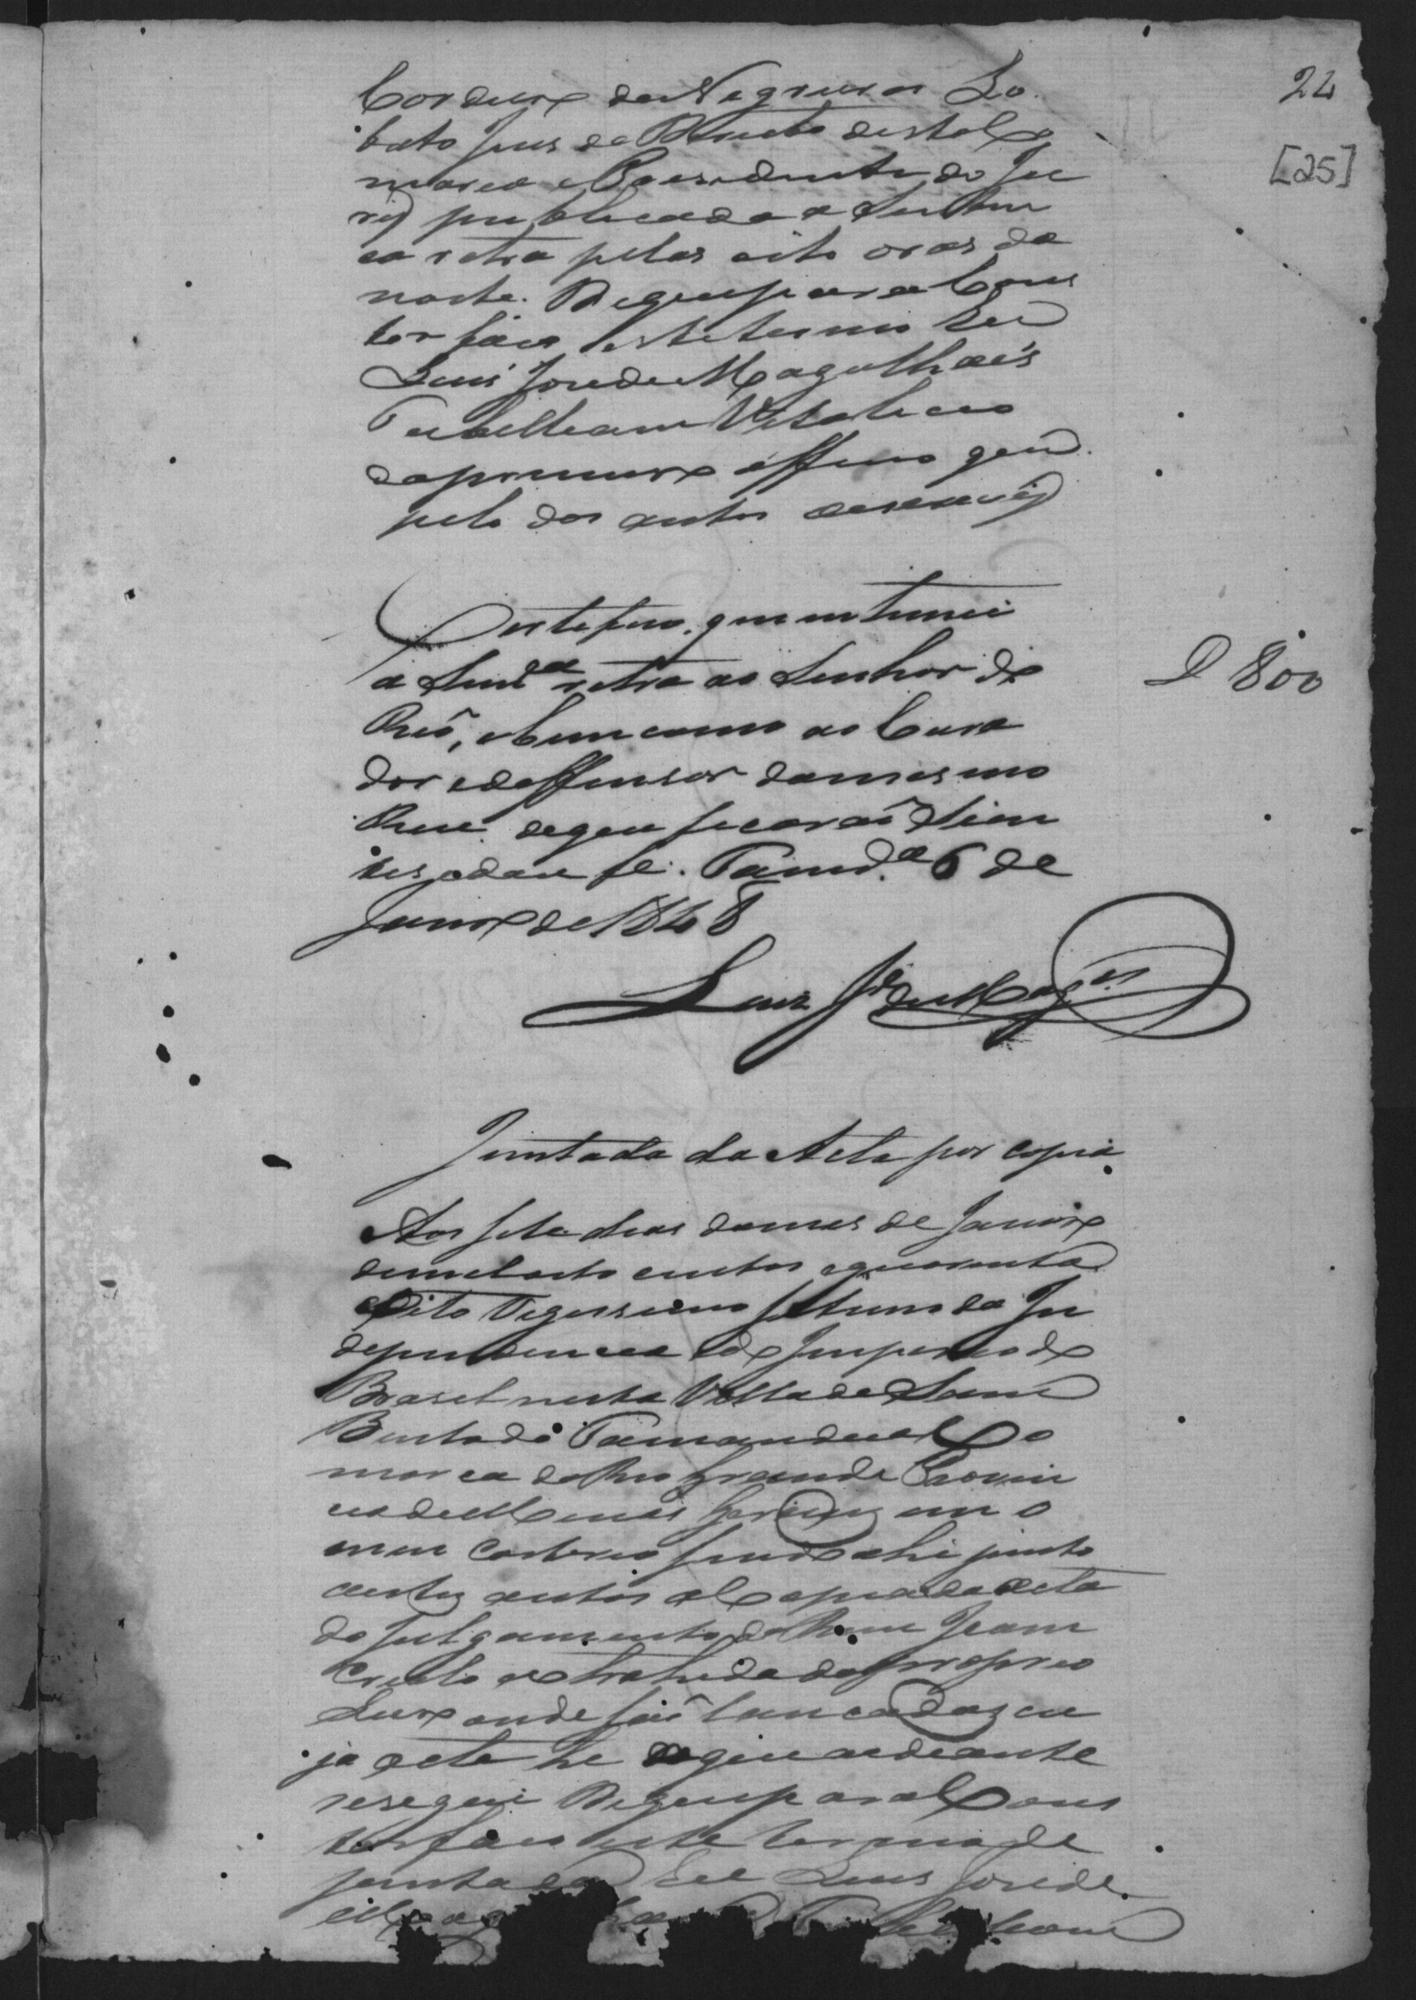 Cordeiro de Negreiros Lo
bato Juis de Direito desta Co
marca e Presidente do Ju
ri publicada a Senten
ca retra pelas oito oras da
noite. De que para Cons
tar faco este termo Eu
Luis Jose de Magalhães
Tabelleam Vitalicio
do primeiro officio que
pelo dos autos escrevi
24
[25]
Certefico que entimei
a Sen.ça retra ao Senhor do
Reo, e bem como ao Cura
dor e deffensor do mesmo
Reu de que ficarão Sien
tes e dou fe. Tamd.a 6 de
Janro de 1848
D 800
Luiz Je de Mages
Juntada da Acta por copia
Aos sete dias do mes de Janro
de mil oito centos e quarenta
e Oito Vigessimo Setimo da In
dependencia e do Imperio do
Brasil nesta Villa de Sam
Bento do Tamandua Co
marca do Rio Grande Provin
cia de Minas Geraes em o
meu Cartorio sendo ahi junto
a estes autos a Copia da acta
do Julgamento do Reu Joam
Criolo extrahida do proprio
Livro onde são lancadas cu
ja acta he a que ao deante
se segue De que para Cons
tar faco este termo de
juntada Eu Luis Jose de